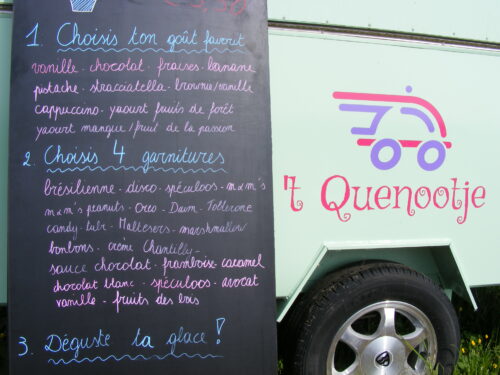 1. Choisis ton goût favori
vanille - chocolat - fraises - banane
pistache - stracciatella - brownie/vanille
cappuccino - yaourt fruits de forêt
yaourt mangue/fruit de la passion
2. Choisis 4 garnitures
brésilienne - disco - spéculoos - m&m's
m&m's peanuts - Oreo - Daim - Toblerone
candy-tubi - Maltesers - marshmallow
bonbons - crème Chantilly -
sauce chocolat - framboise - caramel
chocolat blanc - spéculoos - avocat
vanille - fruits des bois
3. Déguste ta glace !
't Quenootje